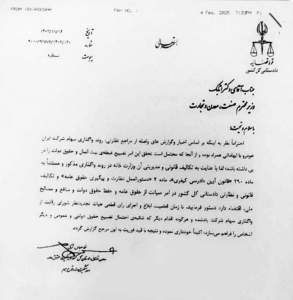 FROM
FAX NO. :
4 Feb. 2025 P1
بسمه تعالی
تاریخ
شماره
پیوست
قوه قضائیه
دادستانی کل کشور
جناب آقای دکتر اتابک
وزیر محترم صنعت، معدن و تجارت
با سلام و تحیت
احتراماً نظر به اینکه بر اساس اخبار و گزارش های واصله از مراجع نظارتی، روند واگذاری سهام شرکت ایران
خودرو با ابهاماتی همراه بوده و از آنجا که محتمل است تحقق این امر تضییع حقوق بیت المال و حقوق دولت را در
پی داشته باشد؛ لذا با عنایت به تکالیف قانونی و مدیریتی آن وزارت خانه در روند واگذاری مذکور و مستنداً به
ماده ۲۹۰ قانون آیین دادرسی کیفری، ماده ۲ «دستورالعمل نظارت و پیگیری حقوق عامه» و تکالیف
قانونی و نظارتی دادستانی کل کشور در امر صیانت از حقوق عامه و حفظ حقوق دولت و منافع و مصالح
ملی، اقتضاء دارد دستور فرمایید، تا زمان قطعیت، ابلاغ و اجرای رأی قطعی هیأت تجدیدنظر شورای رقابت از
واگذاری سهام شرکت یادشده و هرگونه اقدام دیگر که شائبه‌ی احتمال تضییع حقوق دولتی و عمومی و دیگر
اشخاص را فراهم می‌سازد، اکیداً خودداری نموده و نتیجه با قید فوریت به این مرجع گزارش گردد.